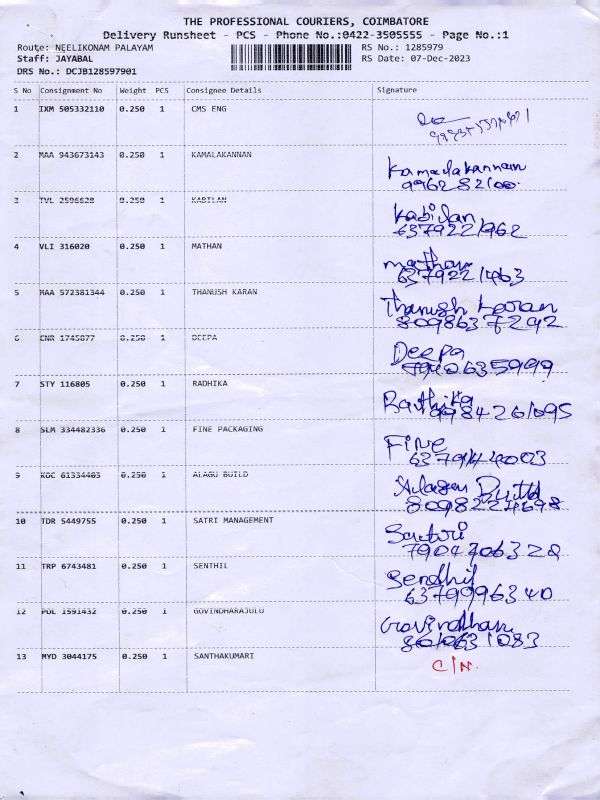 THE PROFESSIONAL COURIERS, COIMBATORE
Delivery Runsheet - PCS - Phone No.:0422-3505555 - Page No.:1
Route: NEELIKONAM PALAYAM RS No.: 1285979
Staff: JAYABAL RS Date: 07-Dec-2023
DRS No.: DCJB128597901
S No Consignment No Weight PCS Consignee Details Signature
1 IXM 505332110 0.250 1 CMS ENG
2 MAA 943673143 0.250 1 KAMALAKANNAN
Kamalakannan
3 TVL 2596628 0.250 1 KABILAN
Kabilan
6379221962
4 VLI 316020 0.250 1 MATHAN
mathan
6379221463
5 MAA 572381344 0.250 1 THANUSH KARAN
Thanush Karan
8098637292
6 CNR 1745077 0.250 1 DEEPA
Deepa
7 STY 116805 0.250 1 RADHIKA
Rathika
9984261095
8 SLM 334482336 0.250 1 FINE PACKAGING
Fine
9 KOC 61334403 0.250 1 ALAGU BUILD
8098224698
10 TDR 5449755 0.250 1 SATRI MANAGEMENT
11 TRP 6743481 0.250 1 SENTHIL
Sendhil
6379996340
12 POL 1591432 0.250 1 GOVINDHARAJULU
Govindhan
8010631083
13 MYD 3044175 0.250 1 SANTHAKUMARI
C/N.